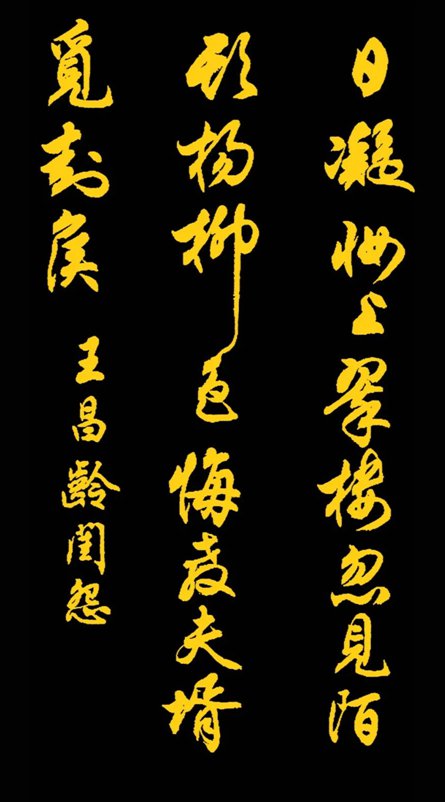 日凝妝上翠樓忽見陌
頭楊柳色悔教夫壻
覓封侯
王昌齡閨怨